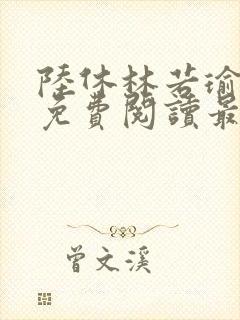 陸休林若瑜
免費閱讀最
曾文溪